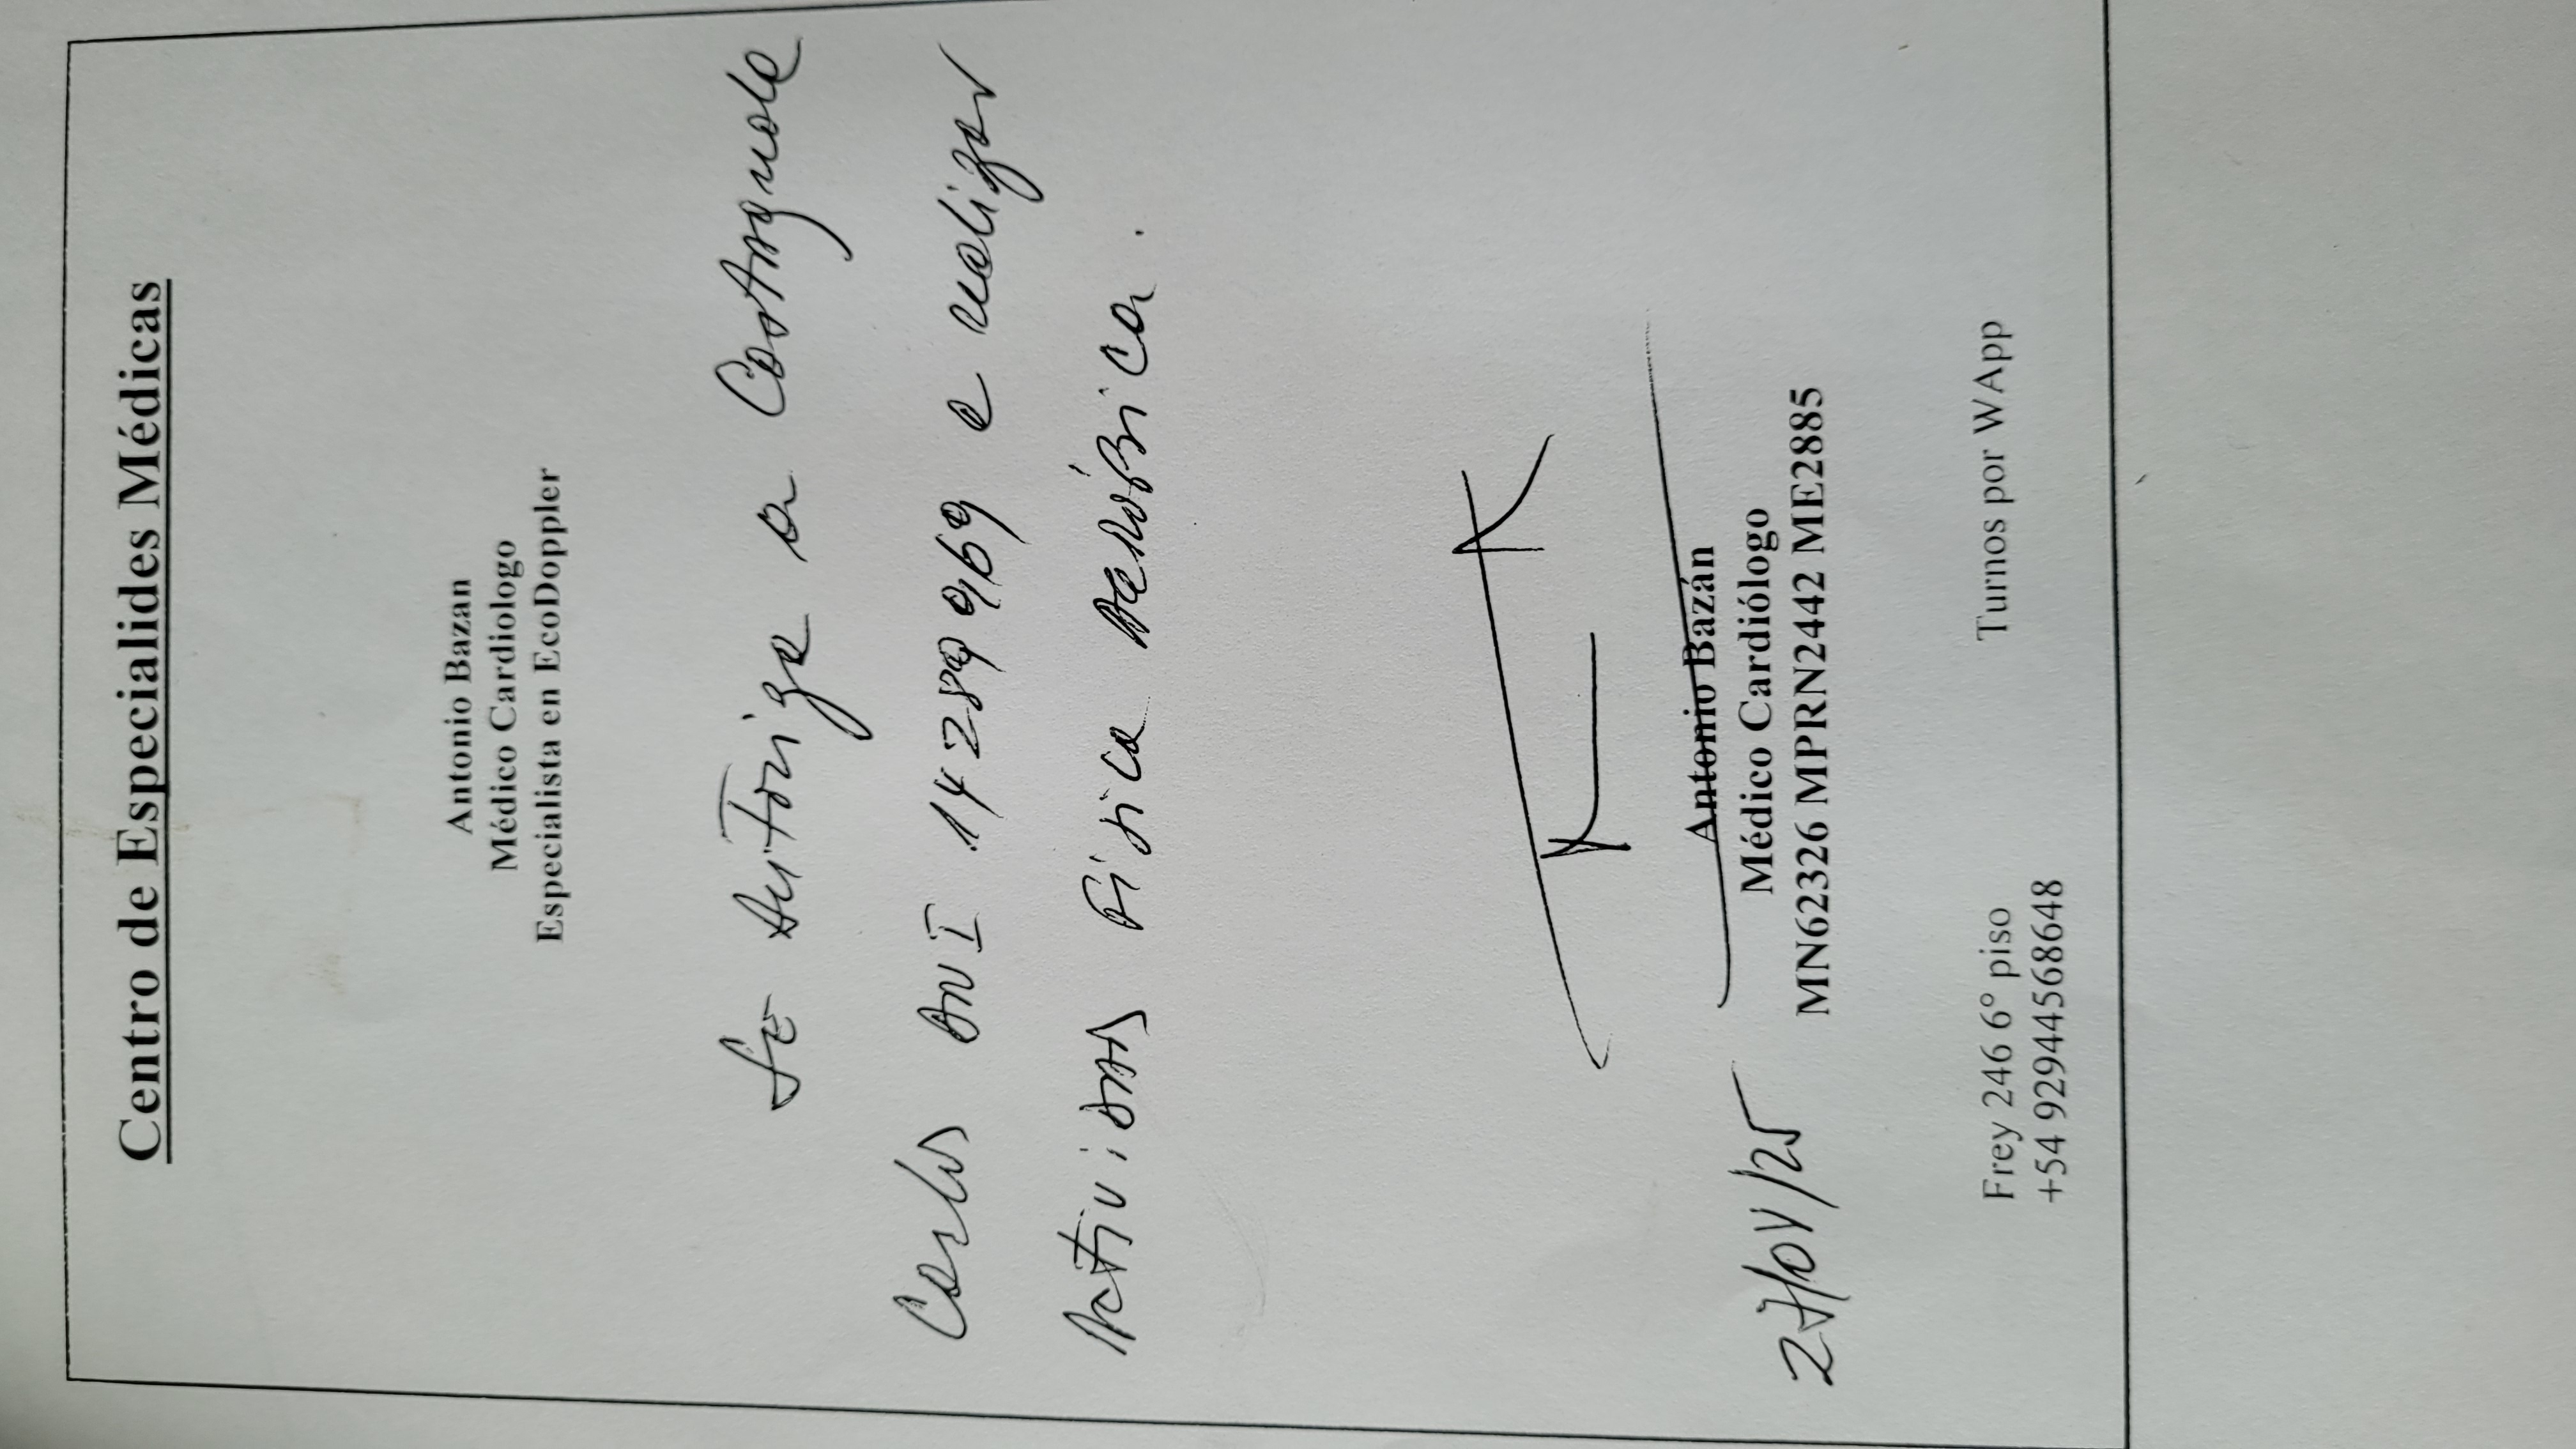 Centro de Especialides Médicas
Antonio Bazan
Médico Cardiologo
Especialista en EcoDoppler
Se Autoriza a Castagnola
Carlos DNI 14289969 a realizar
Actividad Fisica Aeróbica.
Antonio Bazán
Médico Cardiólogo
27/04/25
MN62326 MPRN2442 ME2885
Frey 246 6° piso
Turnos por WApp
+54 92944568648